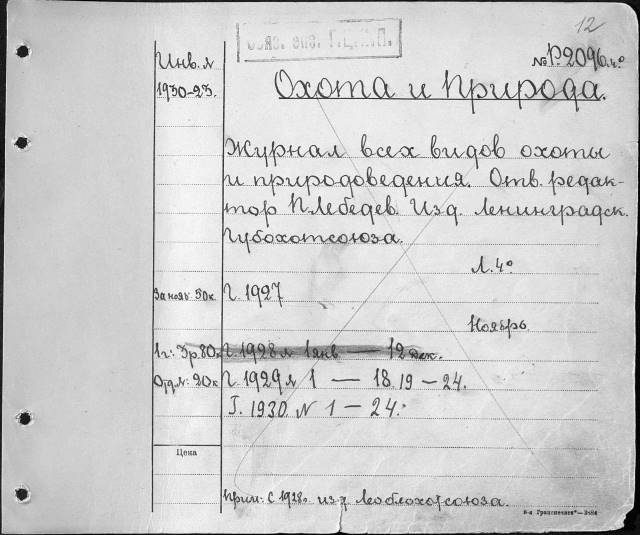 12
Обяз. экз. Г.Ц.К.П.
№ Р2096.4°
Инв. №
1930-23.
Охота и Природа.
Журнал всех видов охоты
и природоведения. Отв. редак-
тор П. Лебедев. Изд. Ленинградск.
Губохотсоюза.
Л. 4°
За нояб. 50к. Г. 1927
Ноябрь.
1 г: 3р.80к Г. 1928 № 1 янв — 12 дек.
Отд. №: 20к Г. 1929 № 1 — 18. 19 — 24.
Г. 1930. N 1 — 24.
Цена
Прим: С 1928г. изд. Леоблохотсоюза.